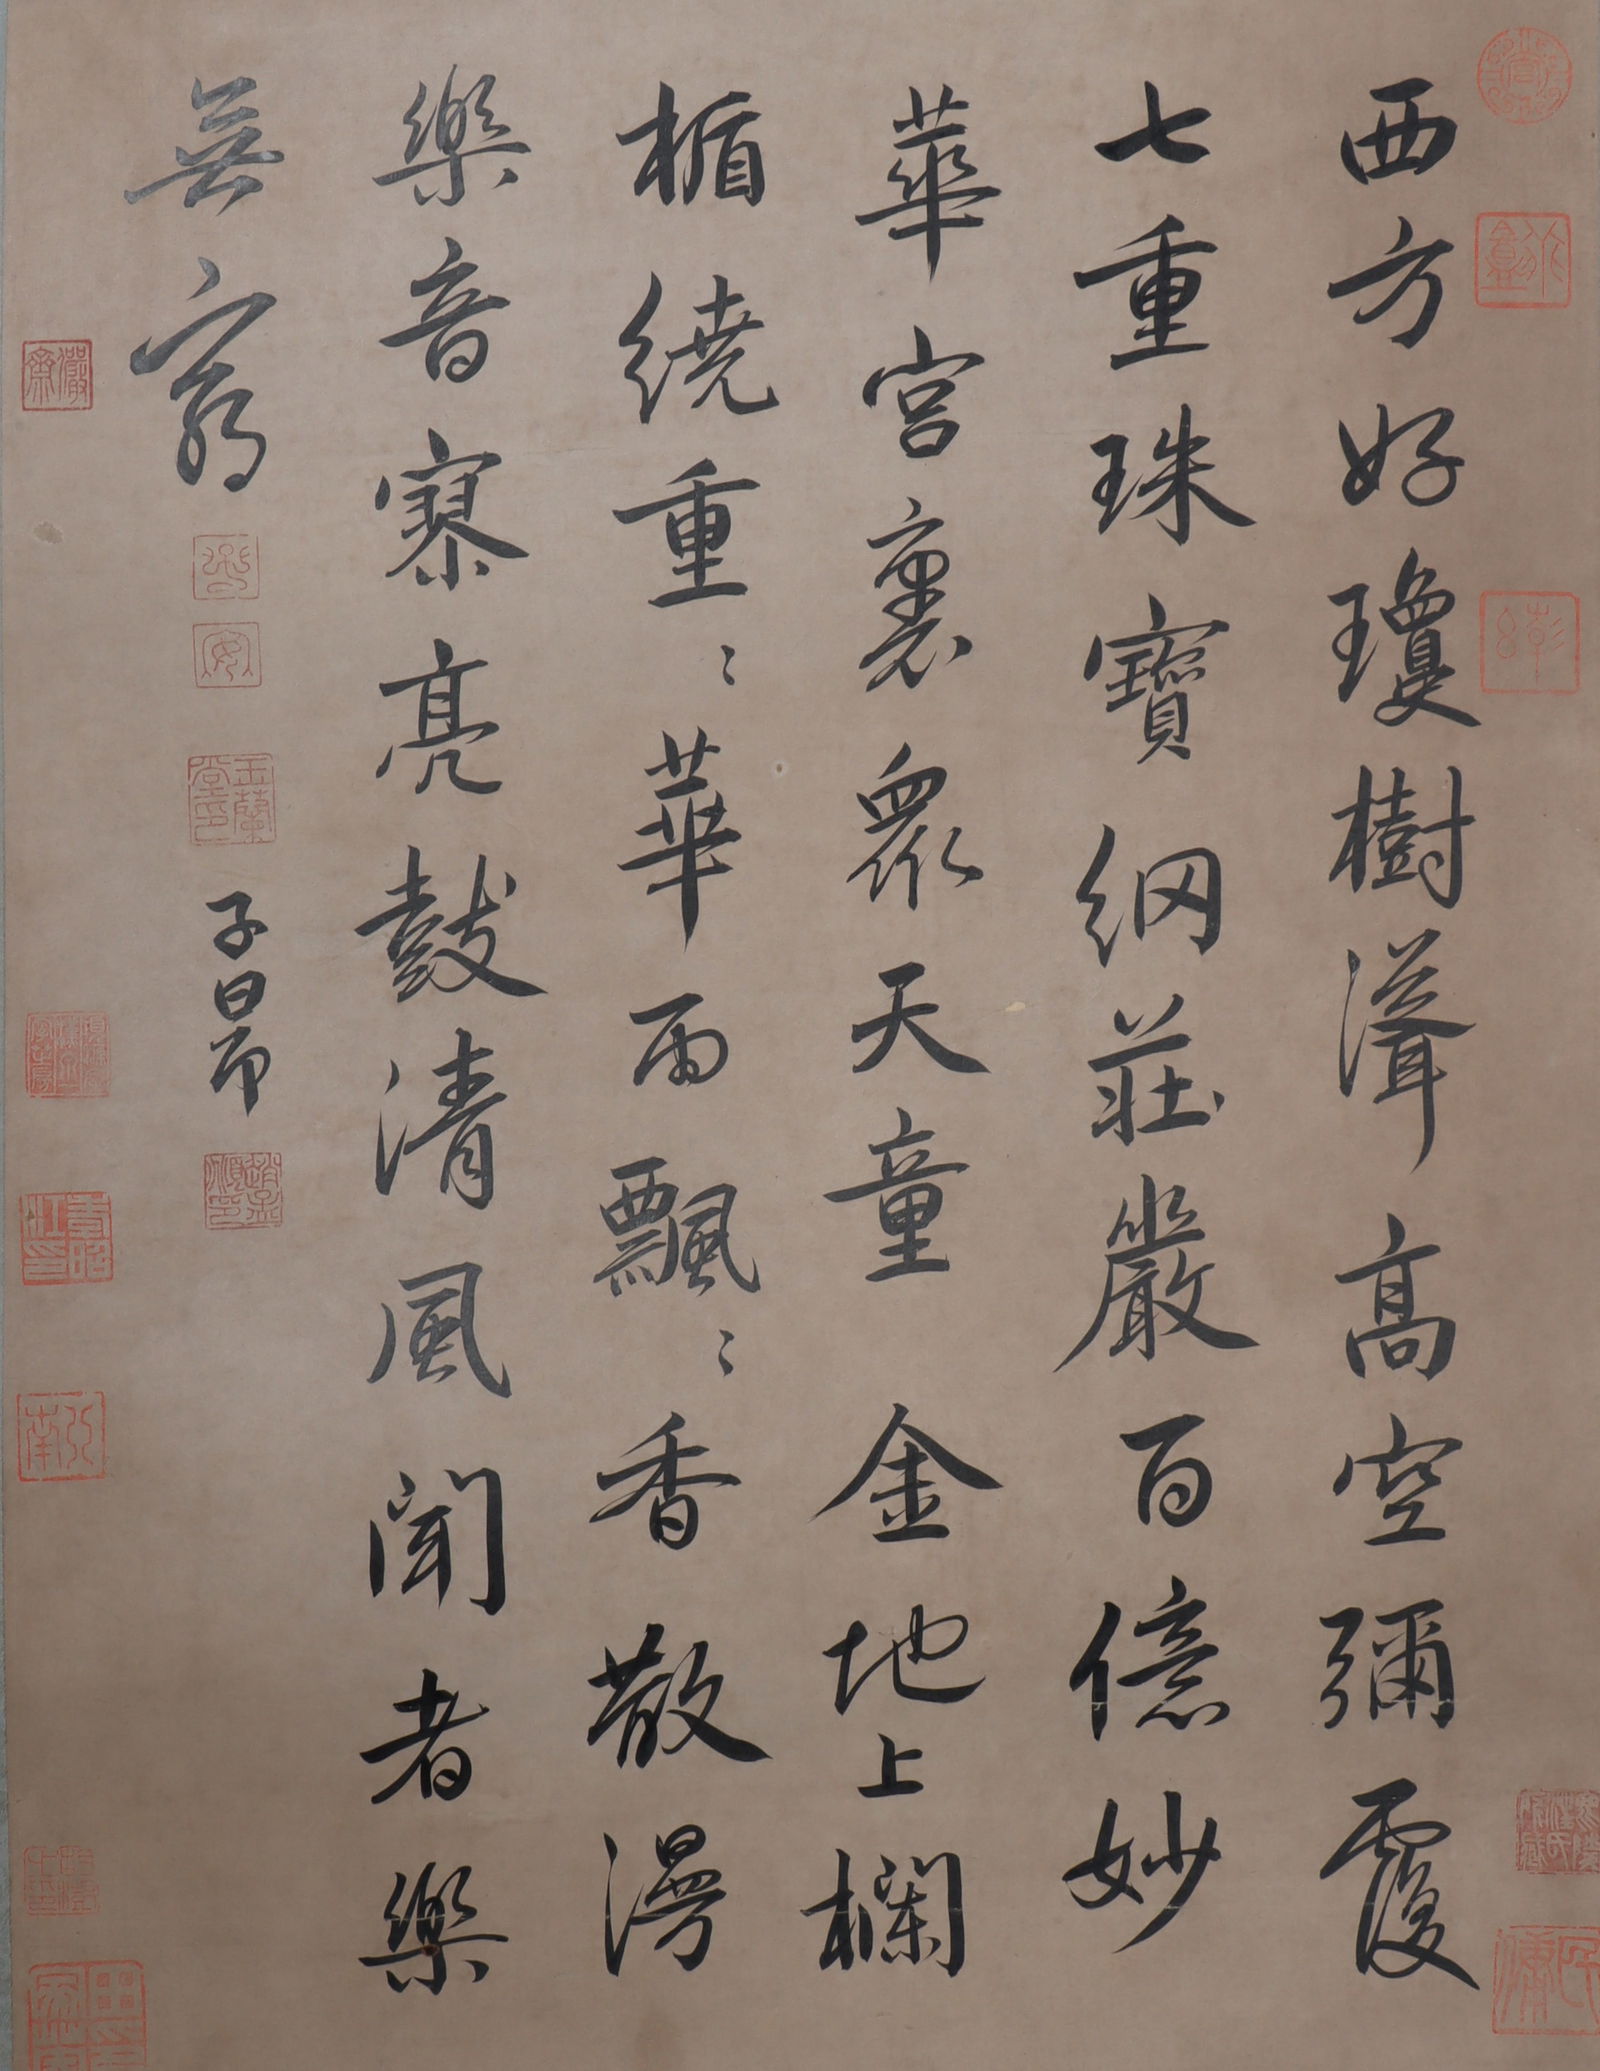 西方好瓊樹聳高空彌覆
七重珠寶網莊嚴百億妙
華宮裏眾天童金地上欄
楯繞重〻華雨飄〻香散漫
樂音寥亮鼓清風聞者樂
無窮
子昂